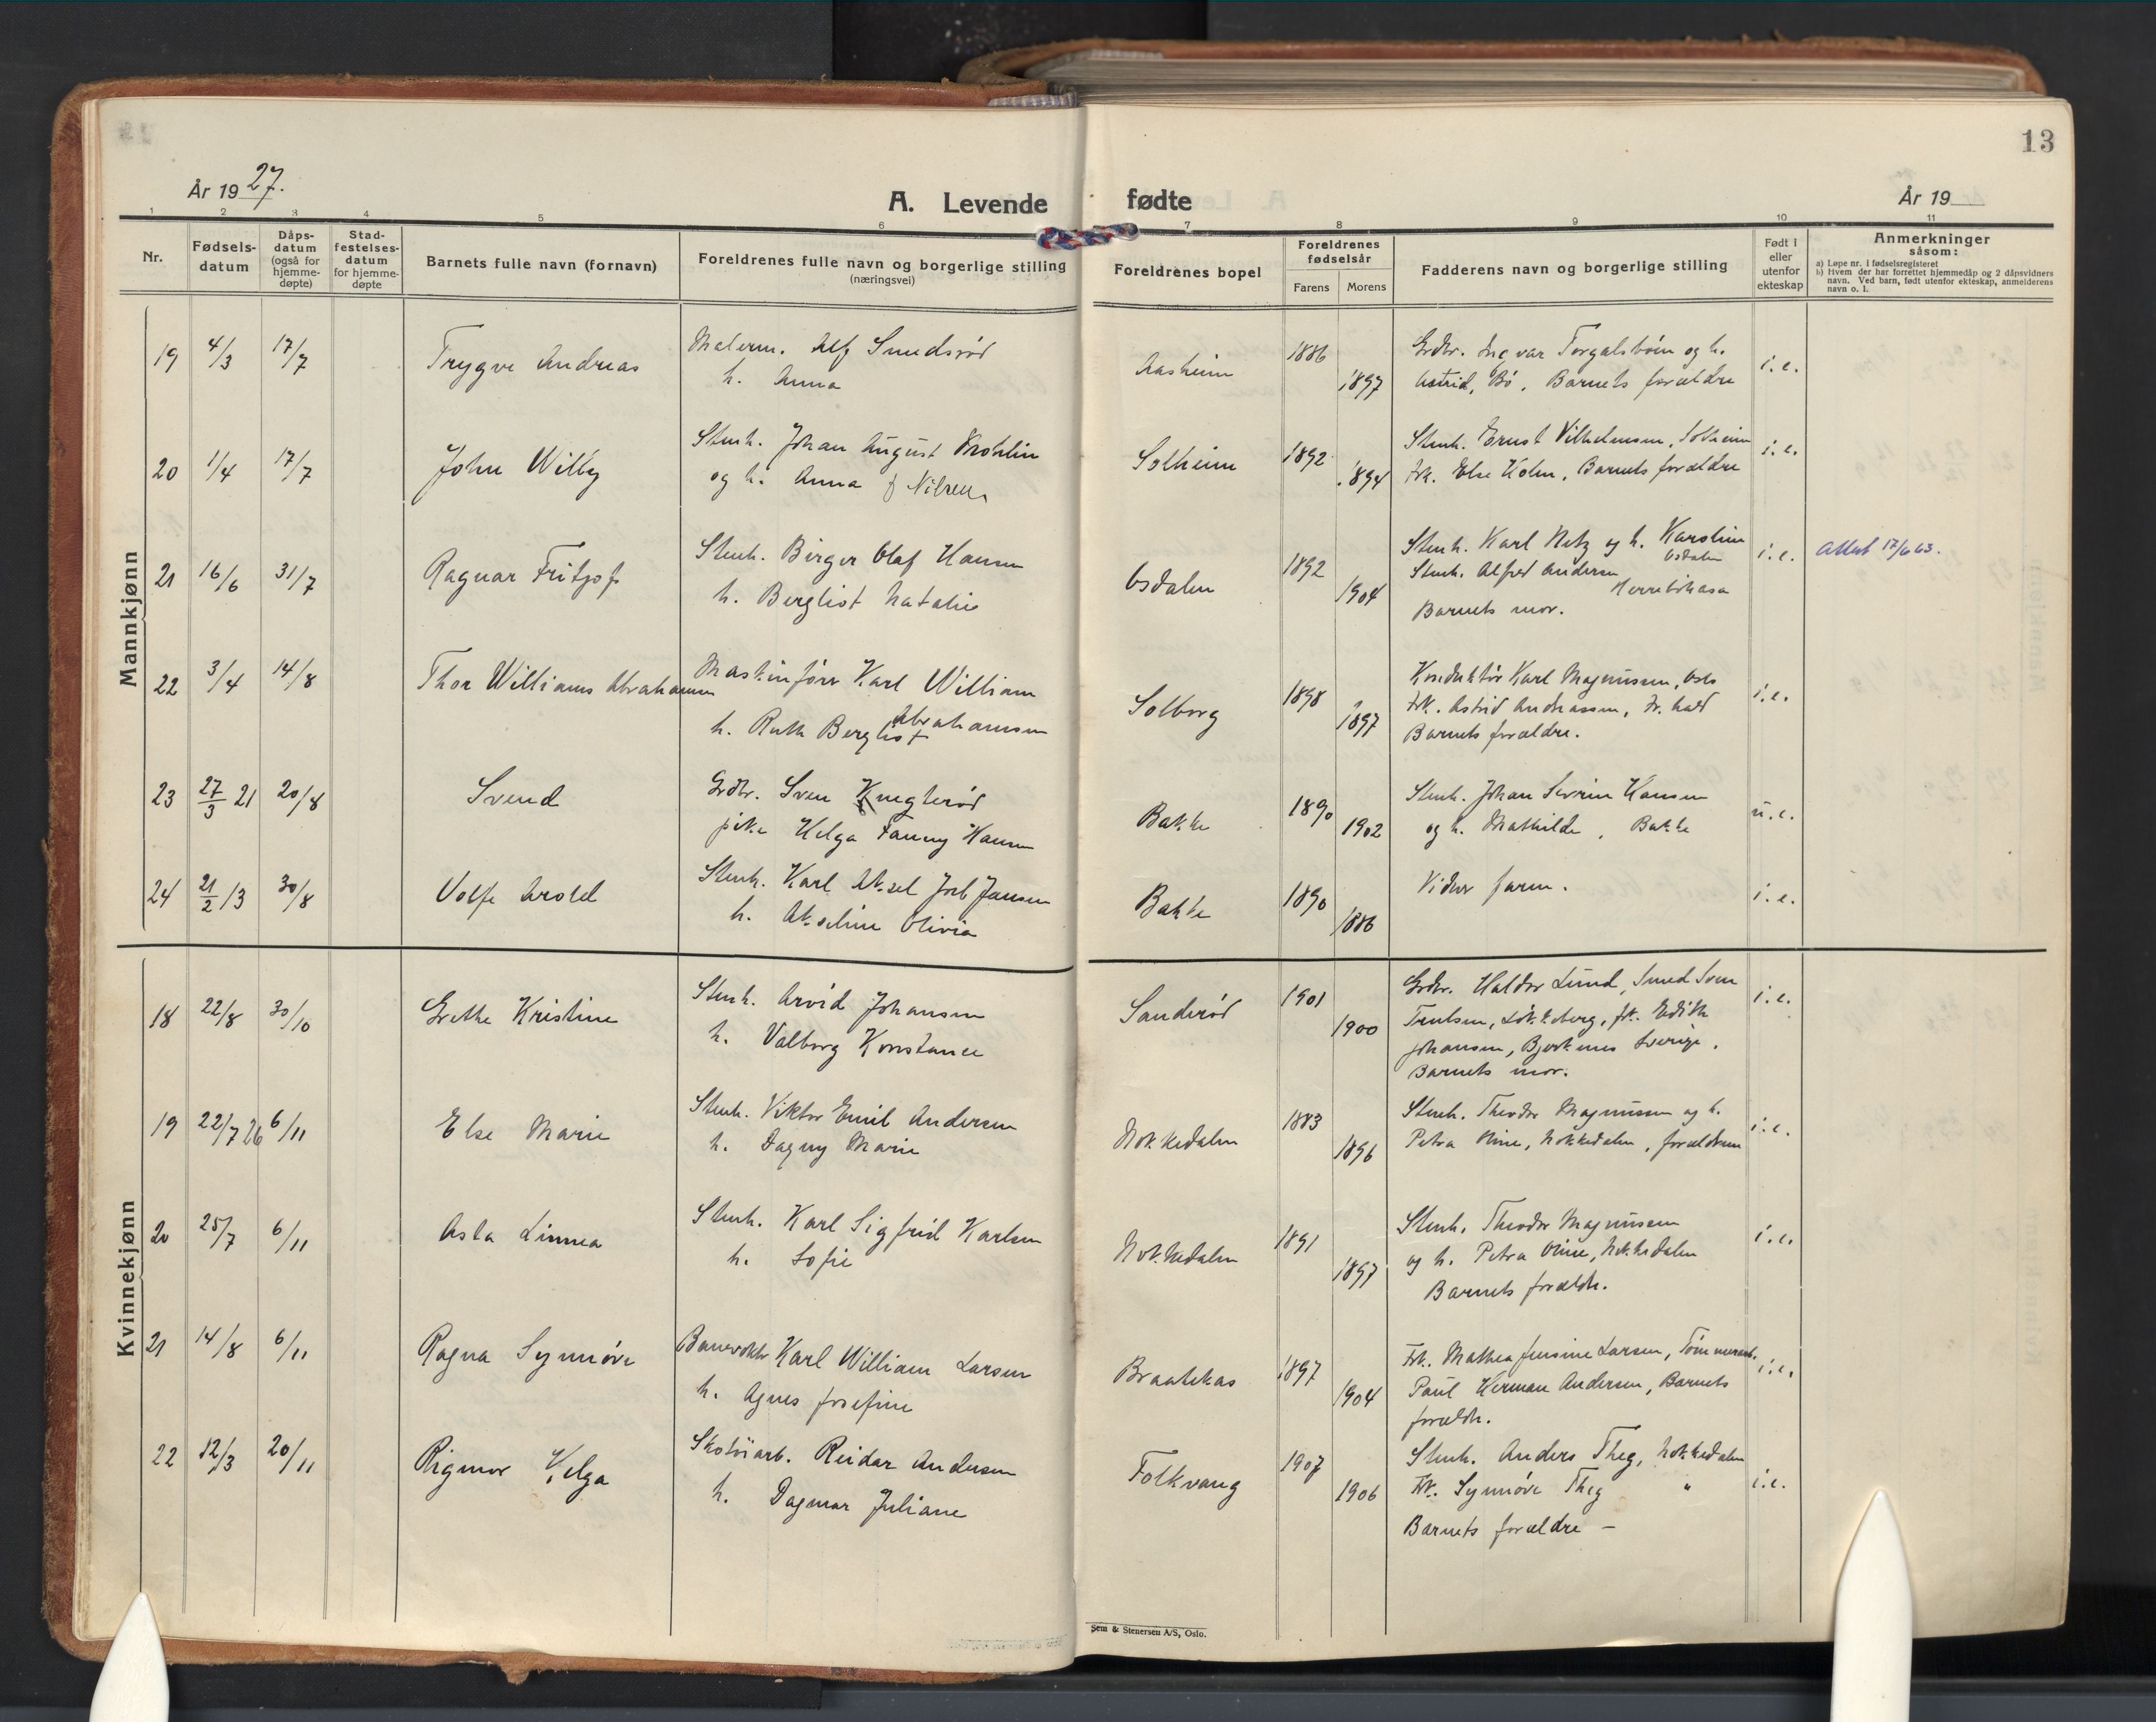 13
År 1927.
A. Levende fødte
År 19
1 2 3 4 5 6 7 8 9 10 11
Nr.
Fødsels-
datum
Dåps-
datum
(også for
hjemme-
døpte)
Stad-
festelses-
datum
for hjemme-
døpte
Barnets fulle navn (fornavn)
Foreldrenes fulle navn og borgerlige stilling
(næringsvei)
Foreldrenes bopel
Foreldrenes
fødselsår
Farens Morens
Fadderens navn og borgerlige stilling
Født i
eller
utenfor
ekteskap
Anmerkninger
såsom:
a) Løpe nr. i fødselsregisteret
b) Hvem der har forrettet hjemmedåp og 2 dåpsvidners
navn. Ved barn, født utenfor ekteskap, anmelderens
navn o. l.
Mannkjønn
19 4/3 17/7 Trygve Andreas
Malerm. Alf Smedsrød
h. Anna
Aasheim 1886 1897
Grdbr. Ingvar og h.
Astrid, Bö, Barnets forældre
i. e.
20 1/4 17/7 John Willy
Stenh. Johan August
og h. Anna f Nilsen
Solheim 1892 1894
Stenh. Ernst Vilhelmsen, Solheim
Frk. Else Holm, Barnets forældre
i. e.
21 16/6 31/7 Ragnar Fritjof
Stenh. Birger Olaf Hansen
h. Bergliot Natalie
Osdalen 1892 1904
Stenh. Karl Netz og h. Karoline
Osdalen
Stenh. Alfred Andersen
Barnets mor.
i. e.
Attest 17/6 63.
22 3/4 14/8 Thor Williams Abrahamsen
Maskinförer Karl William
Abrahamsen
h. Ruth Bergliot
Solborg 1898 1897
Konduktör Karl Magnussen, Oslo
Frk. Astrid Andreassen, Fr.hald
Barnets forældre.
i. e.
23 27/3 21 20/8 Svend
Grdbr. Sven
pike Helga Fanny Hansen
Bakke 1890 1902
Stenh. Johan Severin Hansen
og h. Mathilde, Bakke
u. e.
24 21/2 13 30/8 Volfe Arold
Stenh. Karl Aksel Jansen
h. Akseline Olivia
Bakke 1890 1886
i. e.
Kvinnekjønn
18 22/8 30/10 Grethe Kristine
Stenh. Arvid Johansen
h. Valborg Konstance
Sanderød 1901 1900
Grdbr. Haldor Lund, Smed Sven
Trulsen, Lökkeberg, frk. Edith
Johansen, Bjerkenes Sverige.
Barnets mor.
i. e.
19 22/7 26 6/11 Else Marie
Stenh. Viktor Emil Andersen
h. Dagny Marie
Nokkedalen 1883 1896
Stenh. Theodor Magnussen og h.
Petra Oline, Nokkedalen, forældrene
i. e.
20 25/7 6/11 Asta Linnea
Stenh. Karl Sigfrid Karlsen
h. Sofie
Nokkedalen 1891 1897
Stenh. Theodor Magnussen
og h. Petra Oline, Nokkedalen
Barnets forældre.
i. e.
21 14/8 6/11 Ragna Synnöve
Banevokter Karl William Larsen
h. Agnes Josefine
Braatekas 1897 1904
Frk. Mathea Jensine Larsen, Tömmerarb.
Paul Herman Andersen, Barnets
forældre.
i. e.
22 12/3 20/11 Rigmor Helga
Skotöiarb. Reidar Andersen
h. Dagmar Juliane
Folkvang 1907 1906
Stenh. Anders Theg, Nokkedalen
Frk. Synnöve Theg "
Barnets forældre –
i. e.
Sem & Stenersen A/S, Oslo.